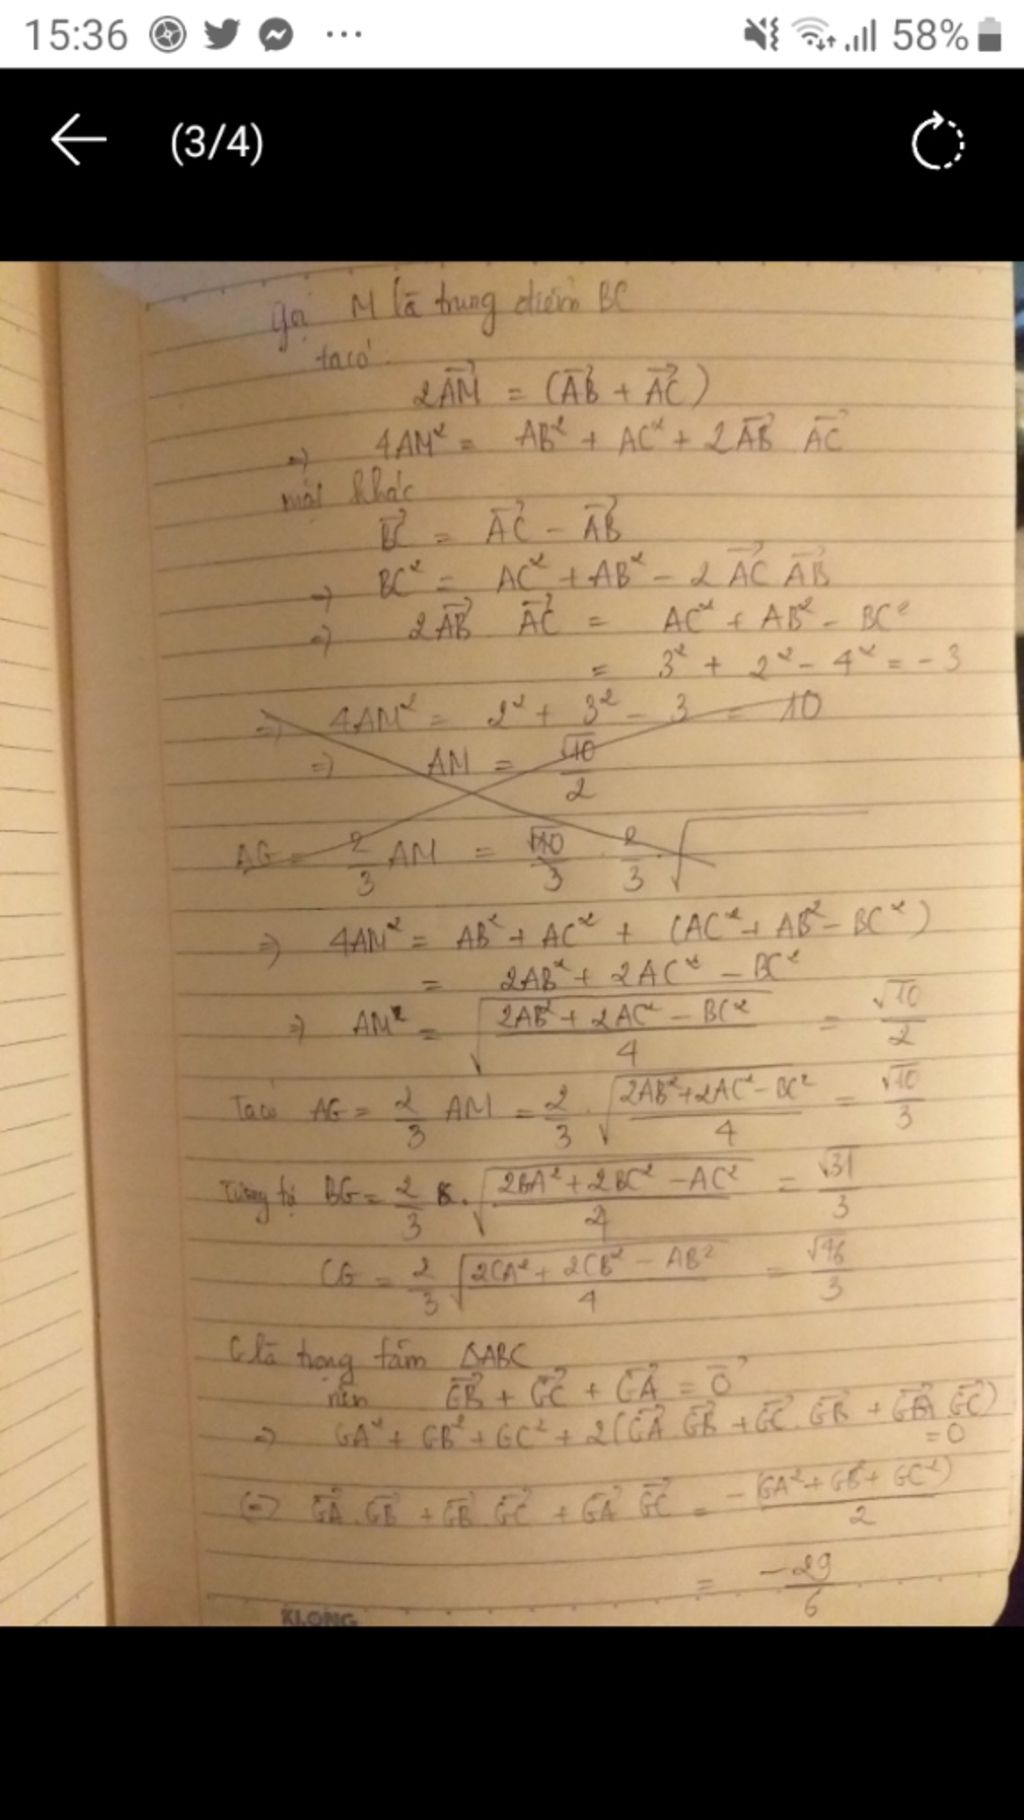 15:36 ... 58%
(3/4)
Gọi M là trung điểm BC
ta có:
2AM⃗ = (AB⃗ + AC⃗)
=> 4AM² = AB² + AC² + 2AB⃗ AC⃗
mặt khác
BC⃗ = AC⃗ - AB⃗
=> BC² = AC² + AB² - 2AC⃗ AB⃗
=> 2AB⃗ AC⃗ = AC² + AB² - BC²
= 3² + 2² - 4² = -3
=> 4AM² = 2² + 3² - 3 = 10
=> AM = √10/2
AG = 2/3 AM = √10/3 · 2/3 · √
=> 4AM² = AB² + AC² + (AC² + AB² - BC²)
= 2AB² + 2AC² - BC²
=> AM² = √((2AB² + 2AC² - BC²)/4) = √10/2
Ta có AG = 2/3 AM = 2/3 · √((2AB² + 2AC² - BC²)/4) = √10/3
Tương tự BG = 2/3 · √((2BA² + 2BC² - AC²)/4) = √31/3
CG = 2/3 √((2CA² + 2CB² - AB²)/4) = √46/3
G là trọng tâm ΔABC
nên GB⃗ + GC⃗ + GA⃗ = 0⃗
=> GA² + GB² + GC² + 2(GA⃗ GB⃗ + GC⃗ . GB⃗ + GA⃗ GC⃗) = 0
<=> GA⃗ . GB⃗ + GB⃗ . GC⃗ + GA⃗ GC⃗ = -(GA² + GB² + GC²)/2
= -29/6
KLONG